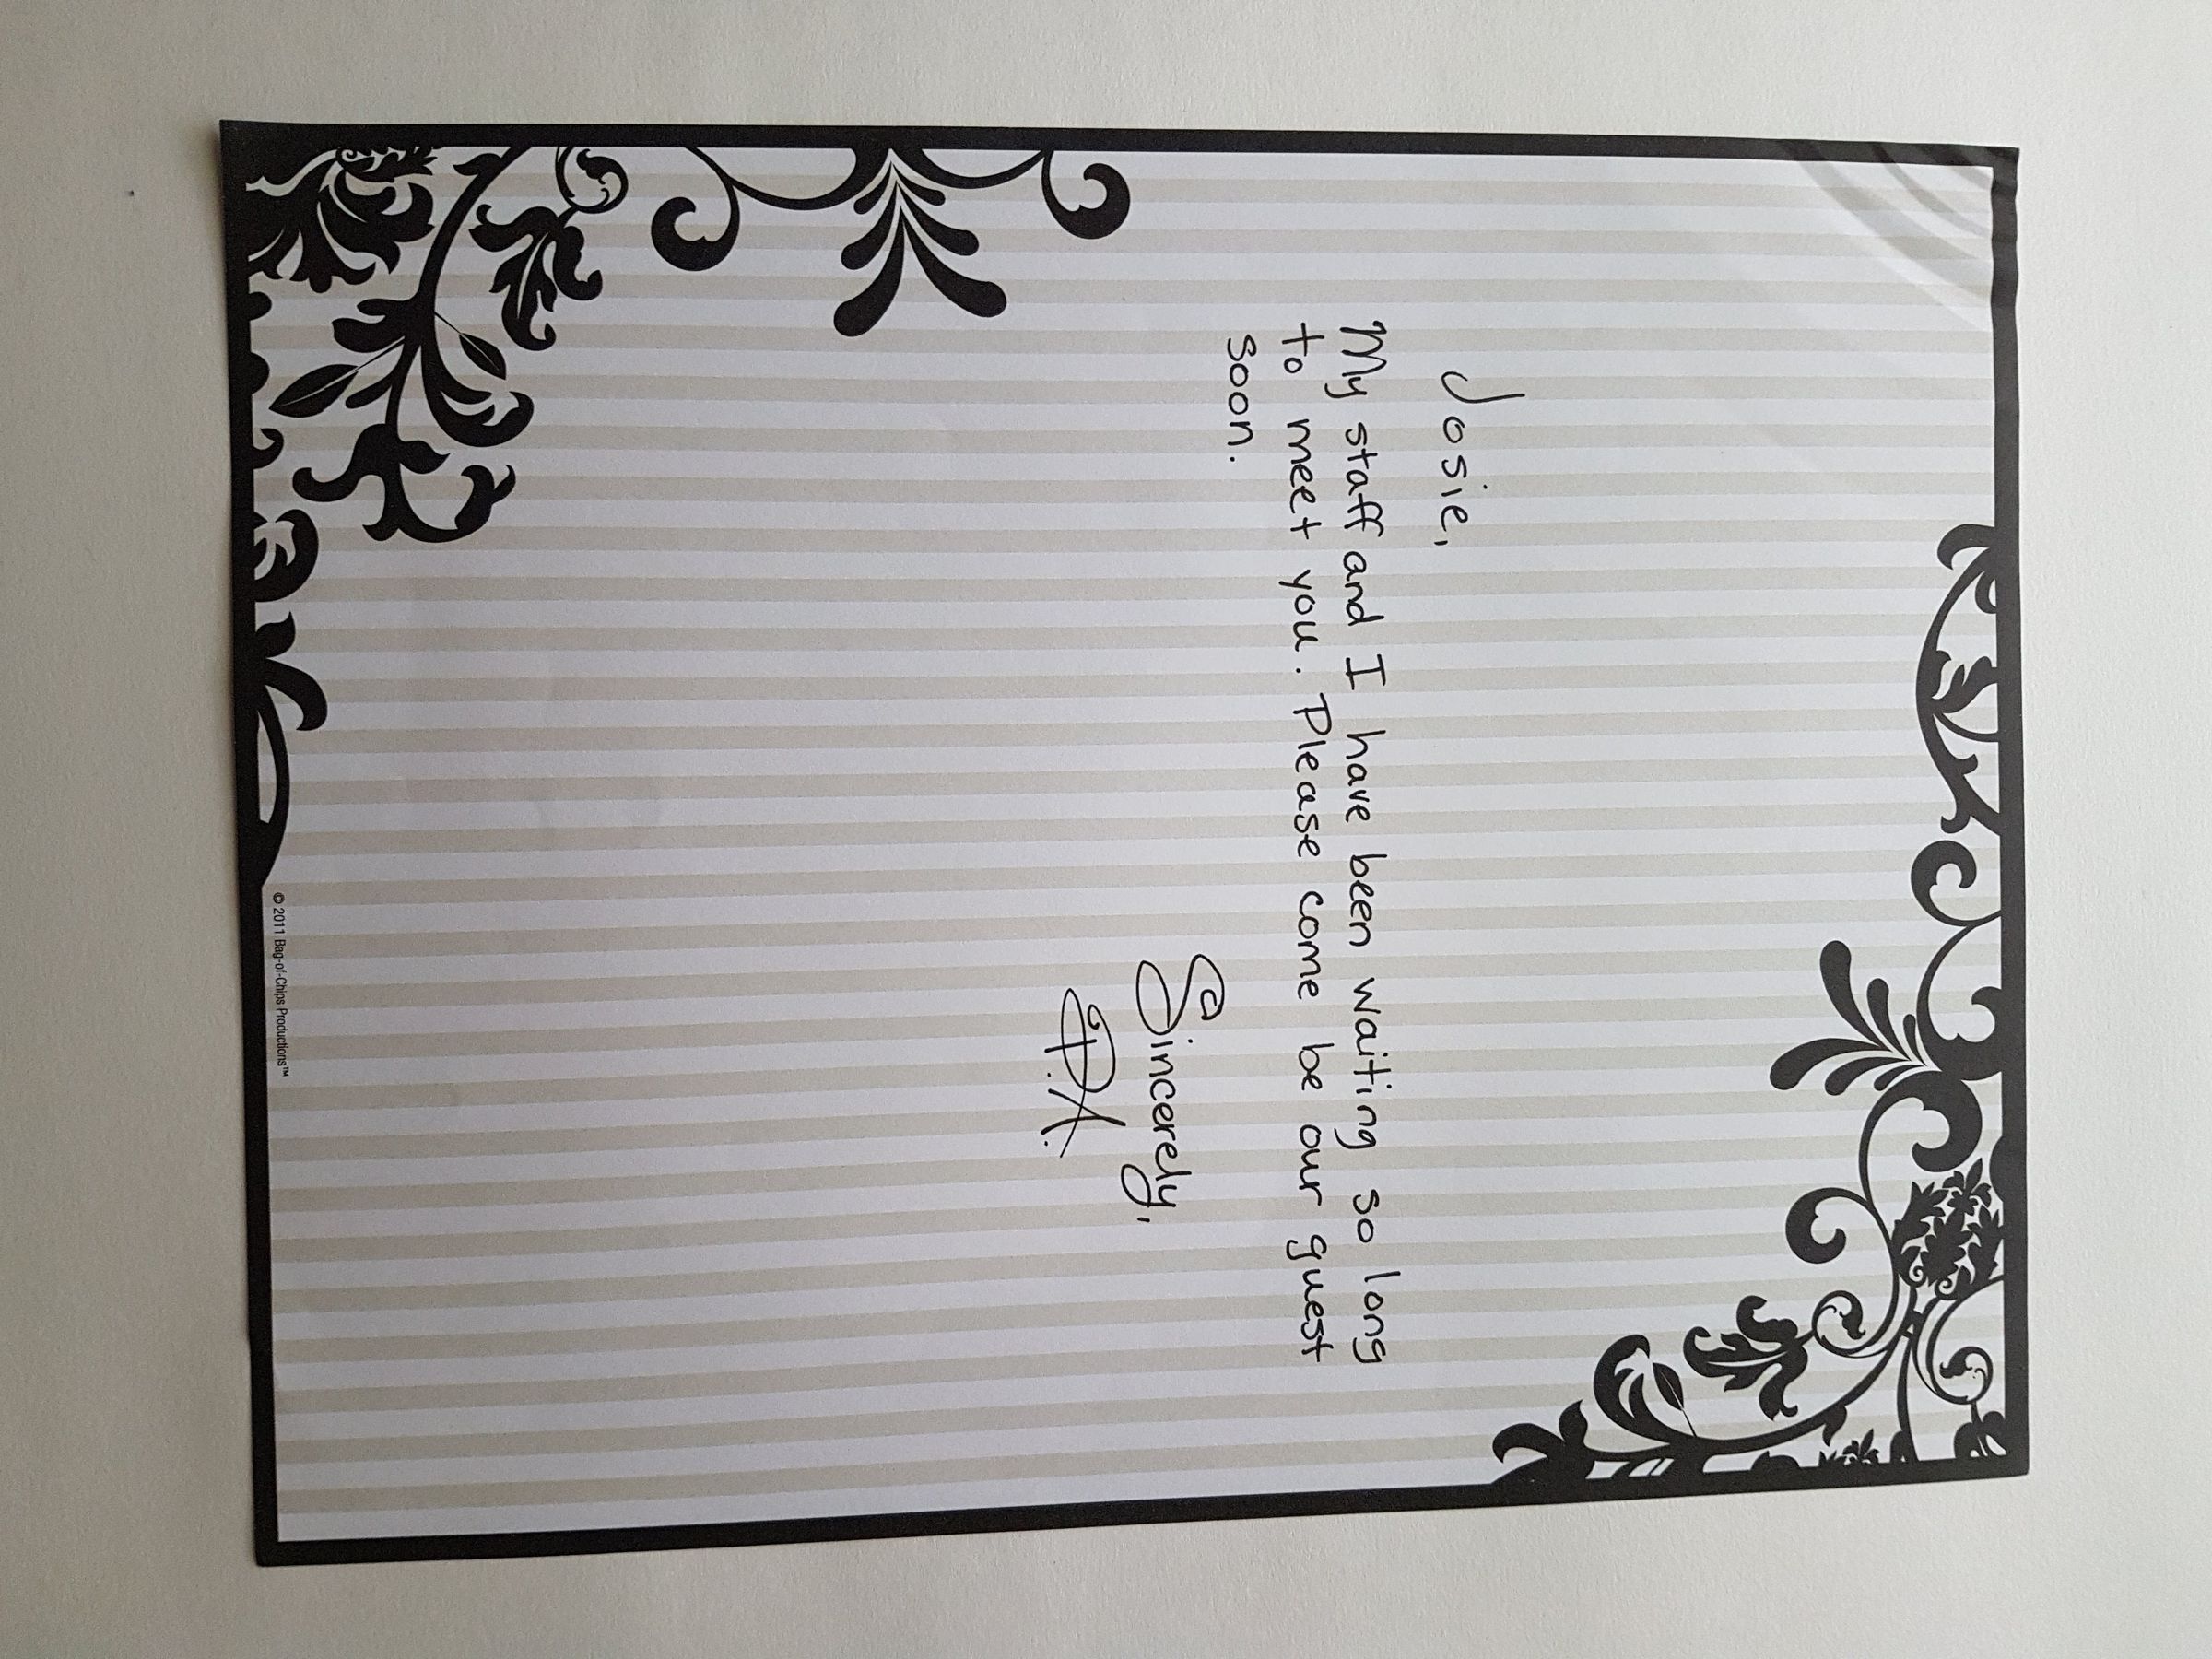 Josie,
My staff and I have been waiting so long
to meet you. Please come be our guest
soon.
Sincerely,
D.A.
© 2011 Bag-of-Chips Productions™